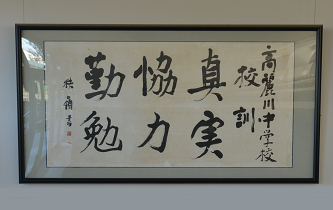 高麗川中学校
校訓
真実
協力
勤勉